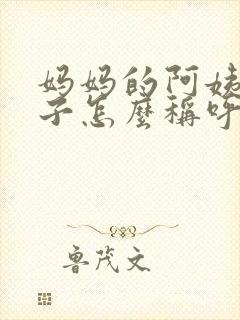 妈妈的阿姨
子怎麼稱呼
鲁茂文